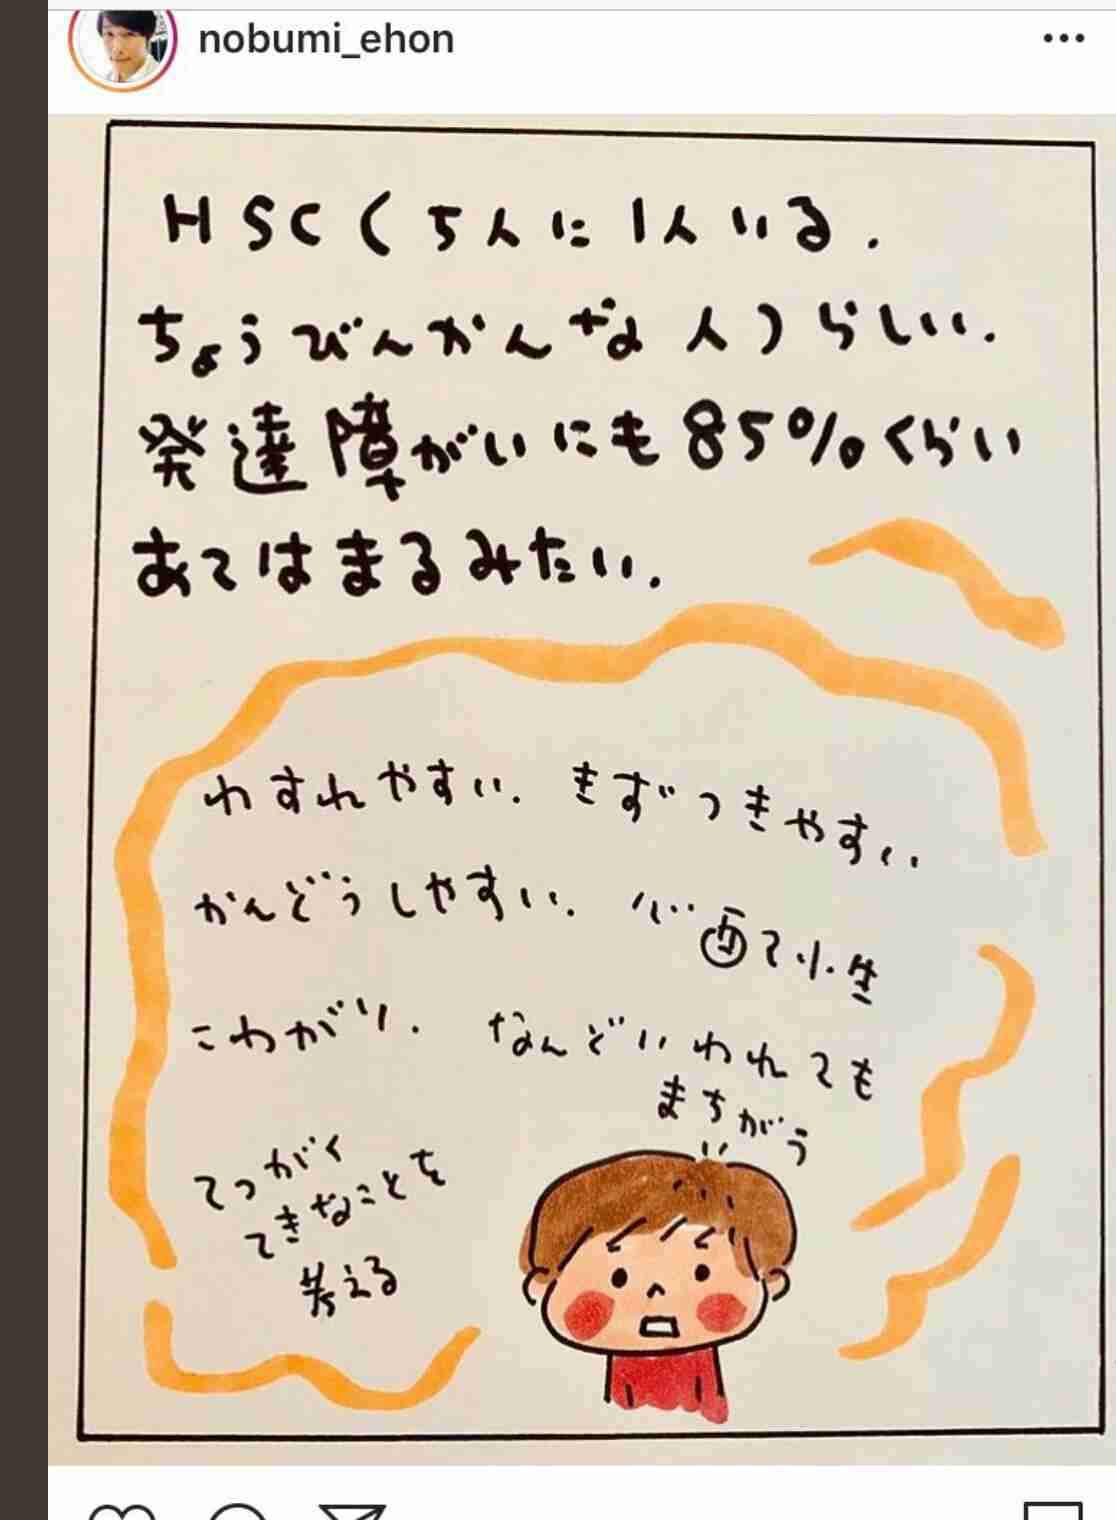 nobumi_ehon
HSC(5人に1人いる.
ちょうびんかんな人)らしい.
発達障がいにも85%くらい
あてはまるみたい.
わすれやすい. きずつきやすい
かんどうしやすい. 心配て小生
こわがり. なんどいわれても
まちがう
てつがく
てきなことを
考える